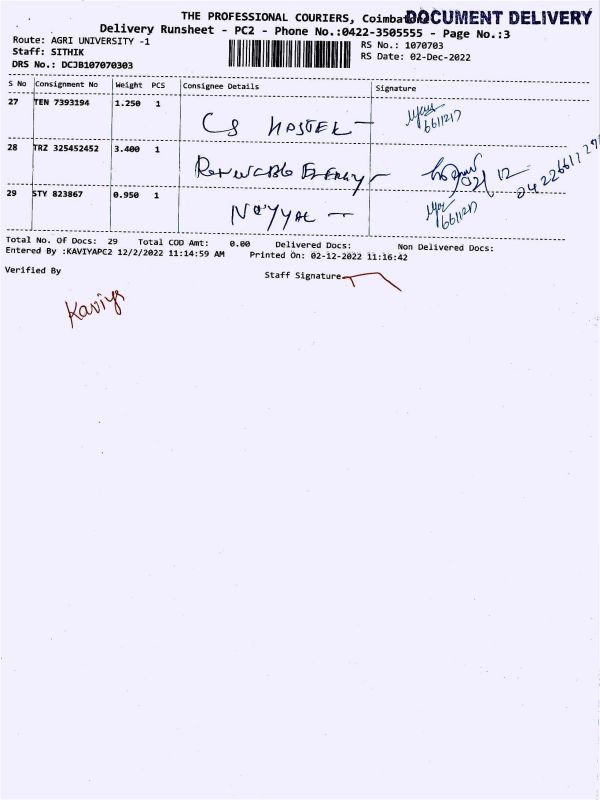 THE PROFESSIONAL COURIERS, Coimbato
DOCUMENT DELIVERY
Delivery Runsheet - PC2 - Phone No.:0422-3505555 - Page No.:3
Route: AGRI UNIVERSITY -1
RS No.: 1070703
Staff: SITHIK
RS Date: 02-Dec-2022
DRS No.: DCJB107070303
S No Consignment No Weight PCS Consignee Details Signature
27 TEN 7393194 1.250 1
CS HOSTEL
6611217
28 TRZ 325452452 3.400 1
Renewable Energy
02/12
29 STY 823867 0.950 1
NOYYAL
6611217
Total No. Of Docs: 29 Total COD Amt: 0.00 Delivered Docs: Non Delivered Docs:
Entered By :KAVIYAPC2 12/2/2022 11:14:59 AM Printed On: 02-12-2022 11:16:42
Verified By Staff Signature
Kaviya